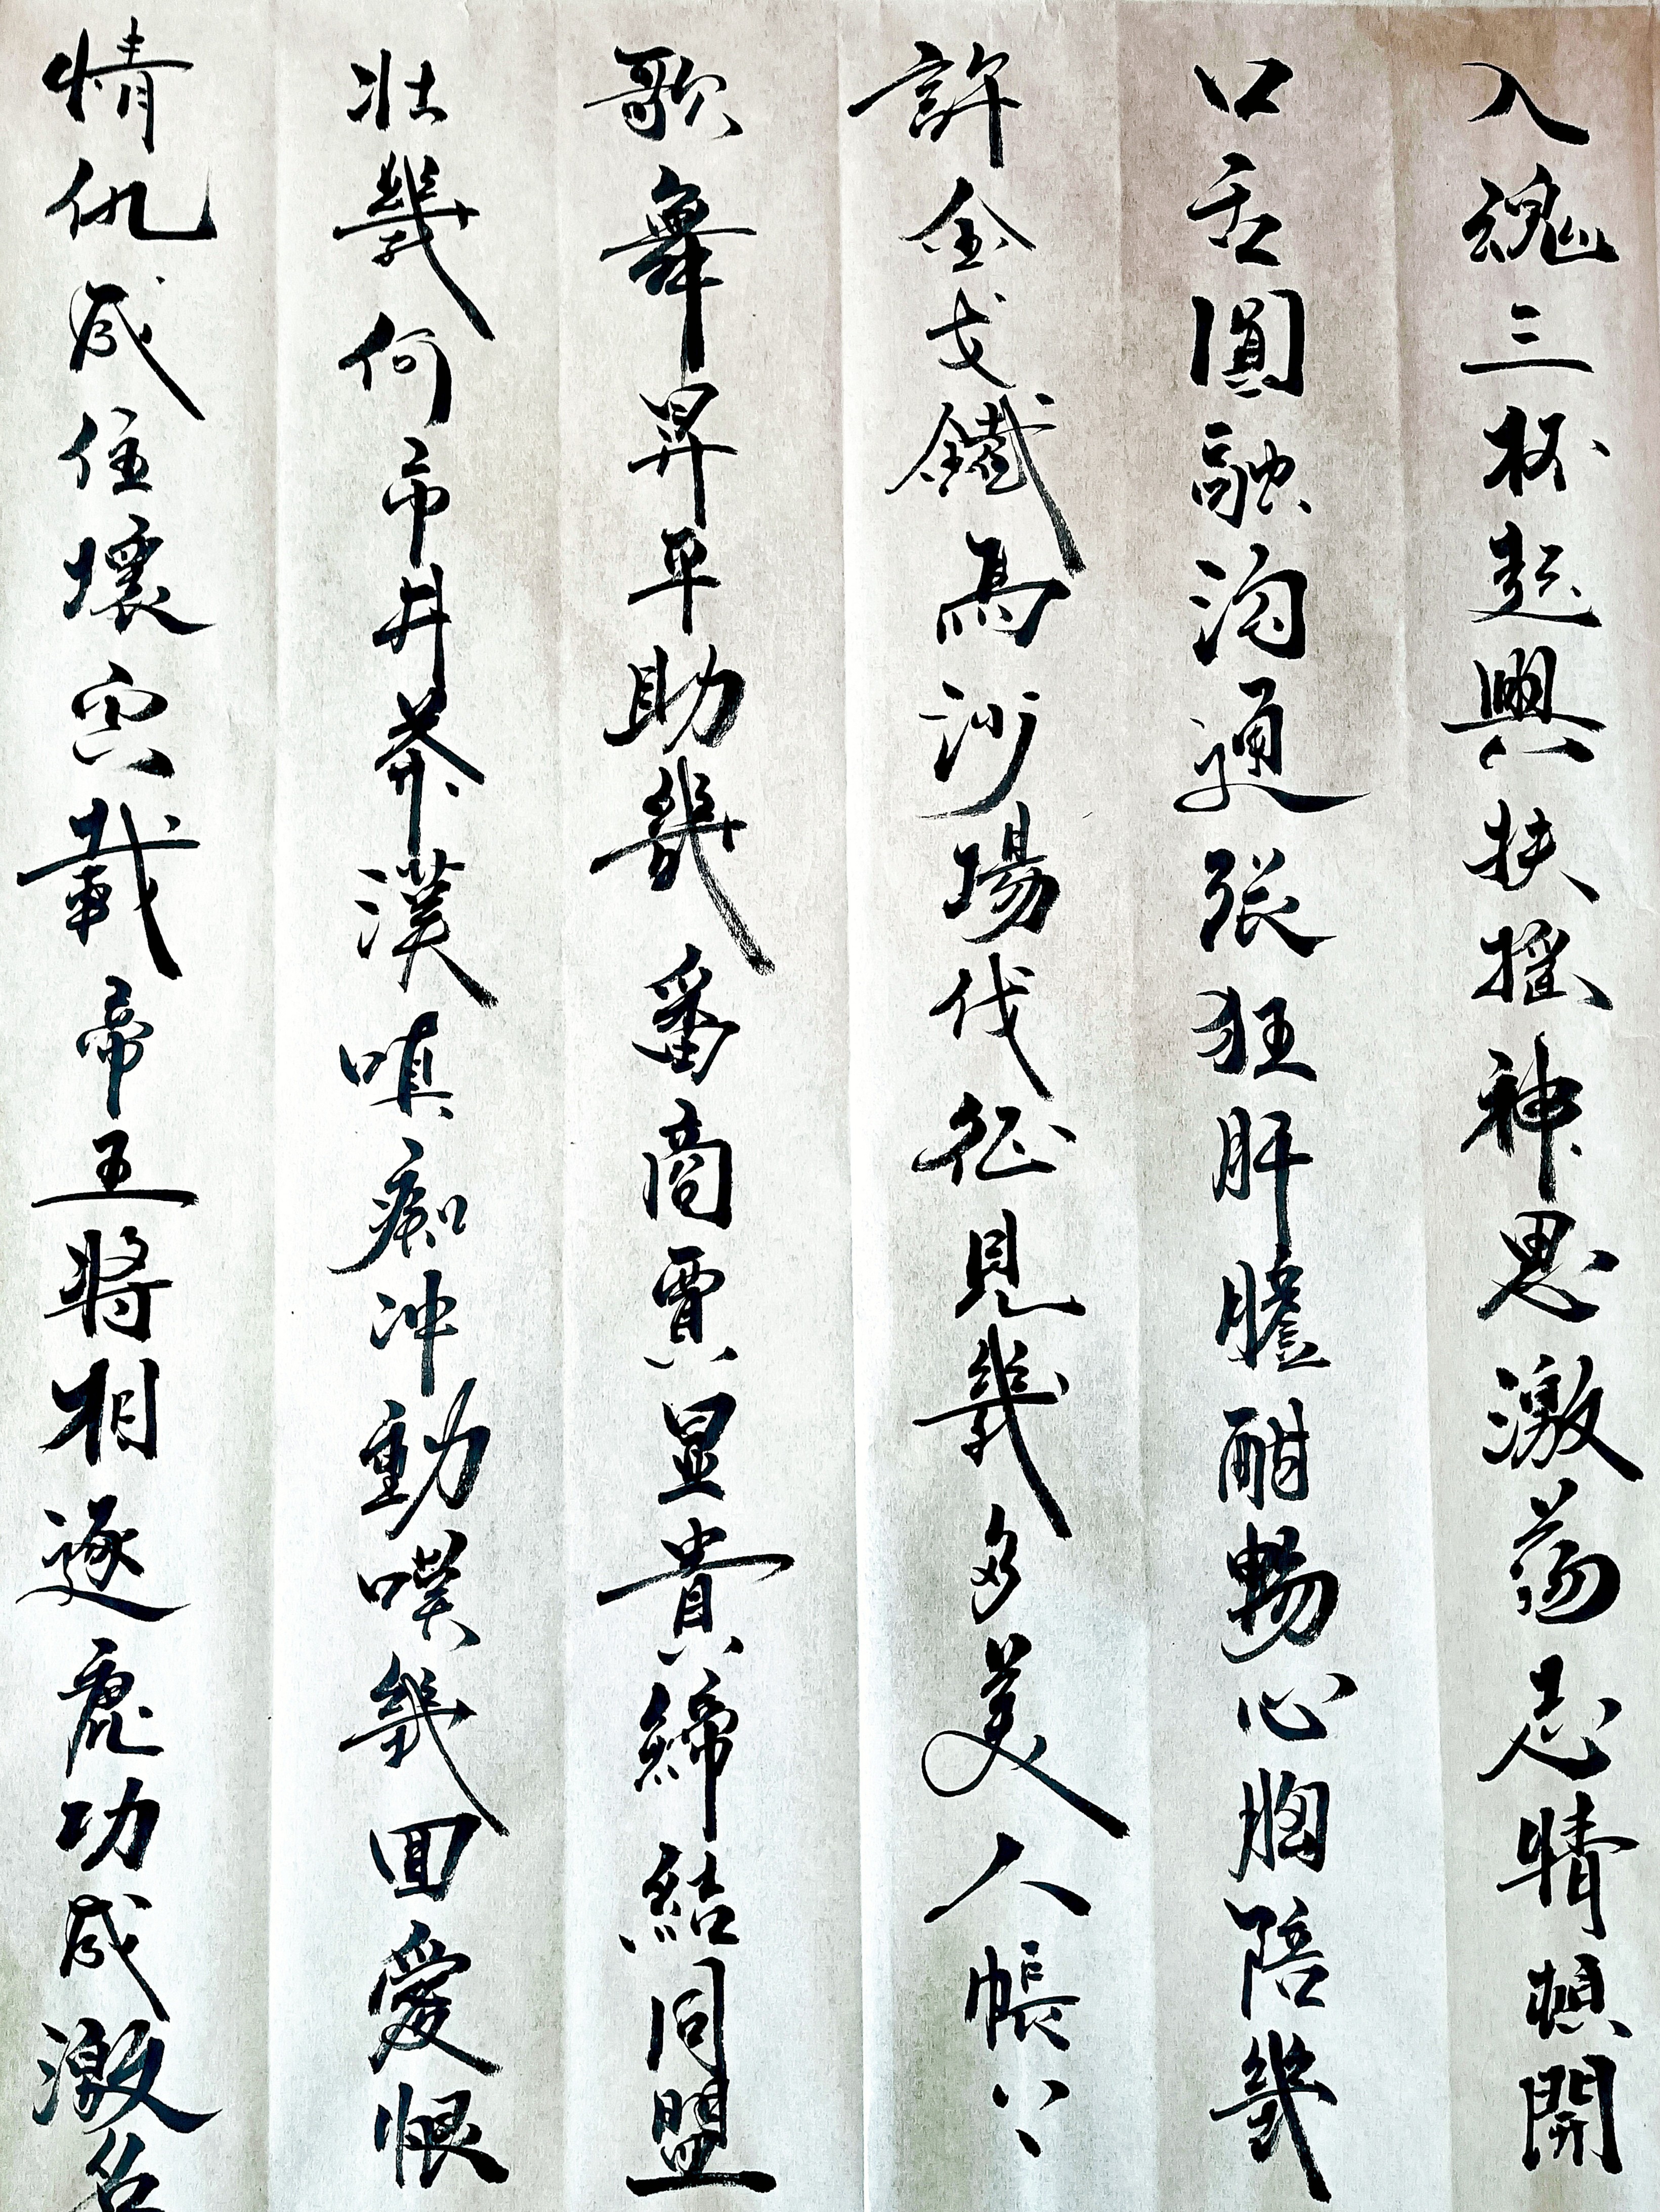 入魂三杯起興扶搖神思激蕩志情頓開
口舌圓融溝通張狂肝膽酣暢心胸陪幾
許金戈鐵馬沙場伐征見幾多美人帳下
歌舞昇平助幾番商賈显貴締結同盟
壯幾何市井莽漢嗔痴冲動嘆幾回愛恨
情仇成住壞空載帝王將相逐鹿功成激名